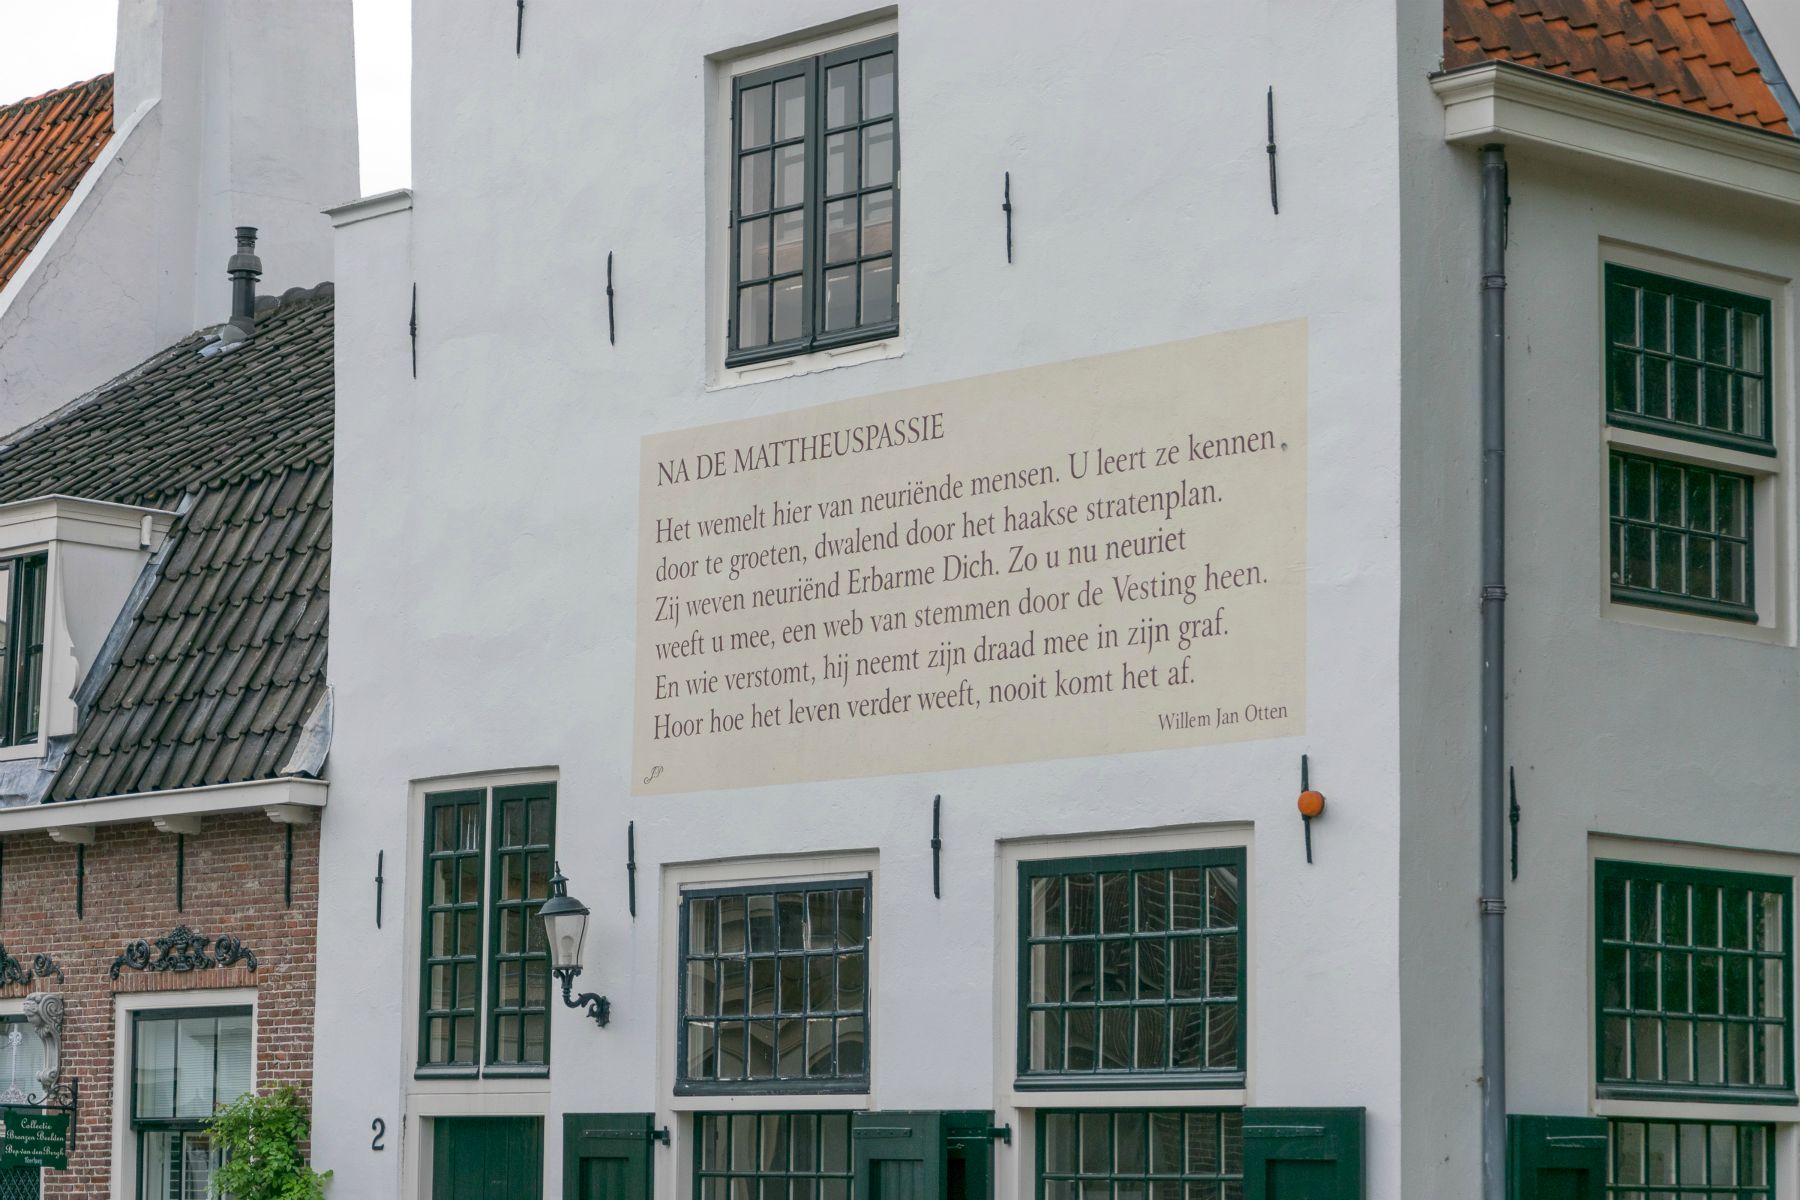 NA DE MATTHEUSPASSIE
Het wemelt hier van neuriënde mensen. U leert ze kennen
door te groeten, dwalend door het haakse stratenplan.
Zij weven neuriënd Erbarme Dich. Zo u nu neuriet
weeft u mee, een web van stemmen door de Vesting heen.
En wie verstomt, hij neemt zijn draad mee in zijn graf.
Hoor hoe het leven verder weeft, nooit komt het af.
Willem Jan Otten
JP
2
Collectie
Bronzen Beelden
Bep van den Bergh